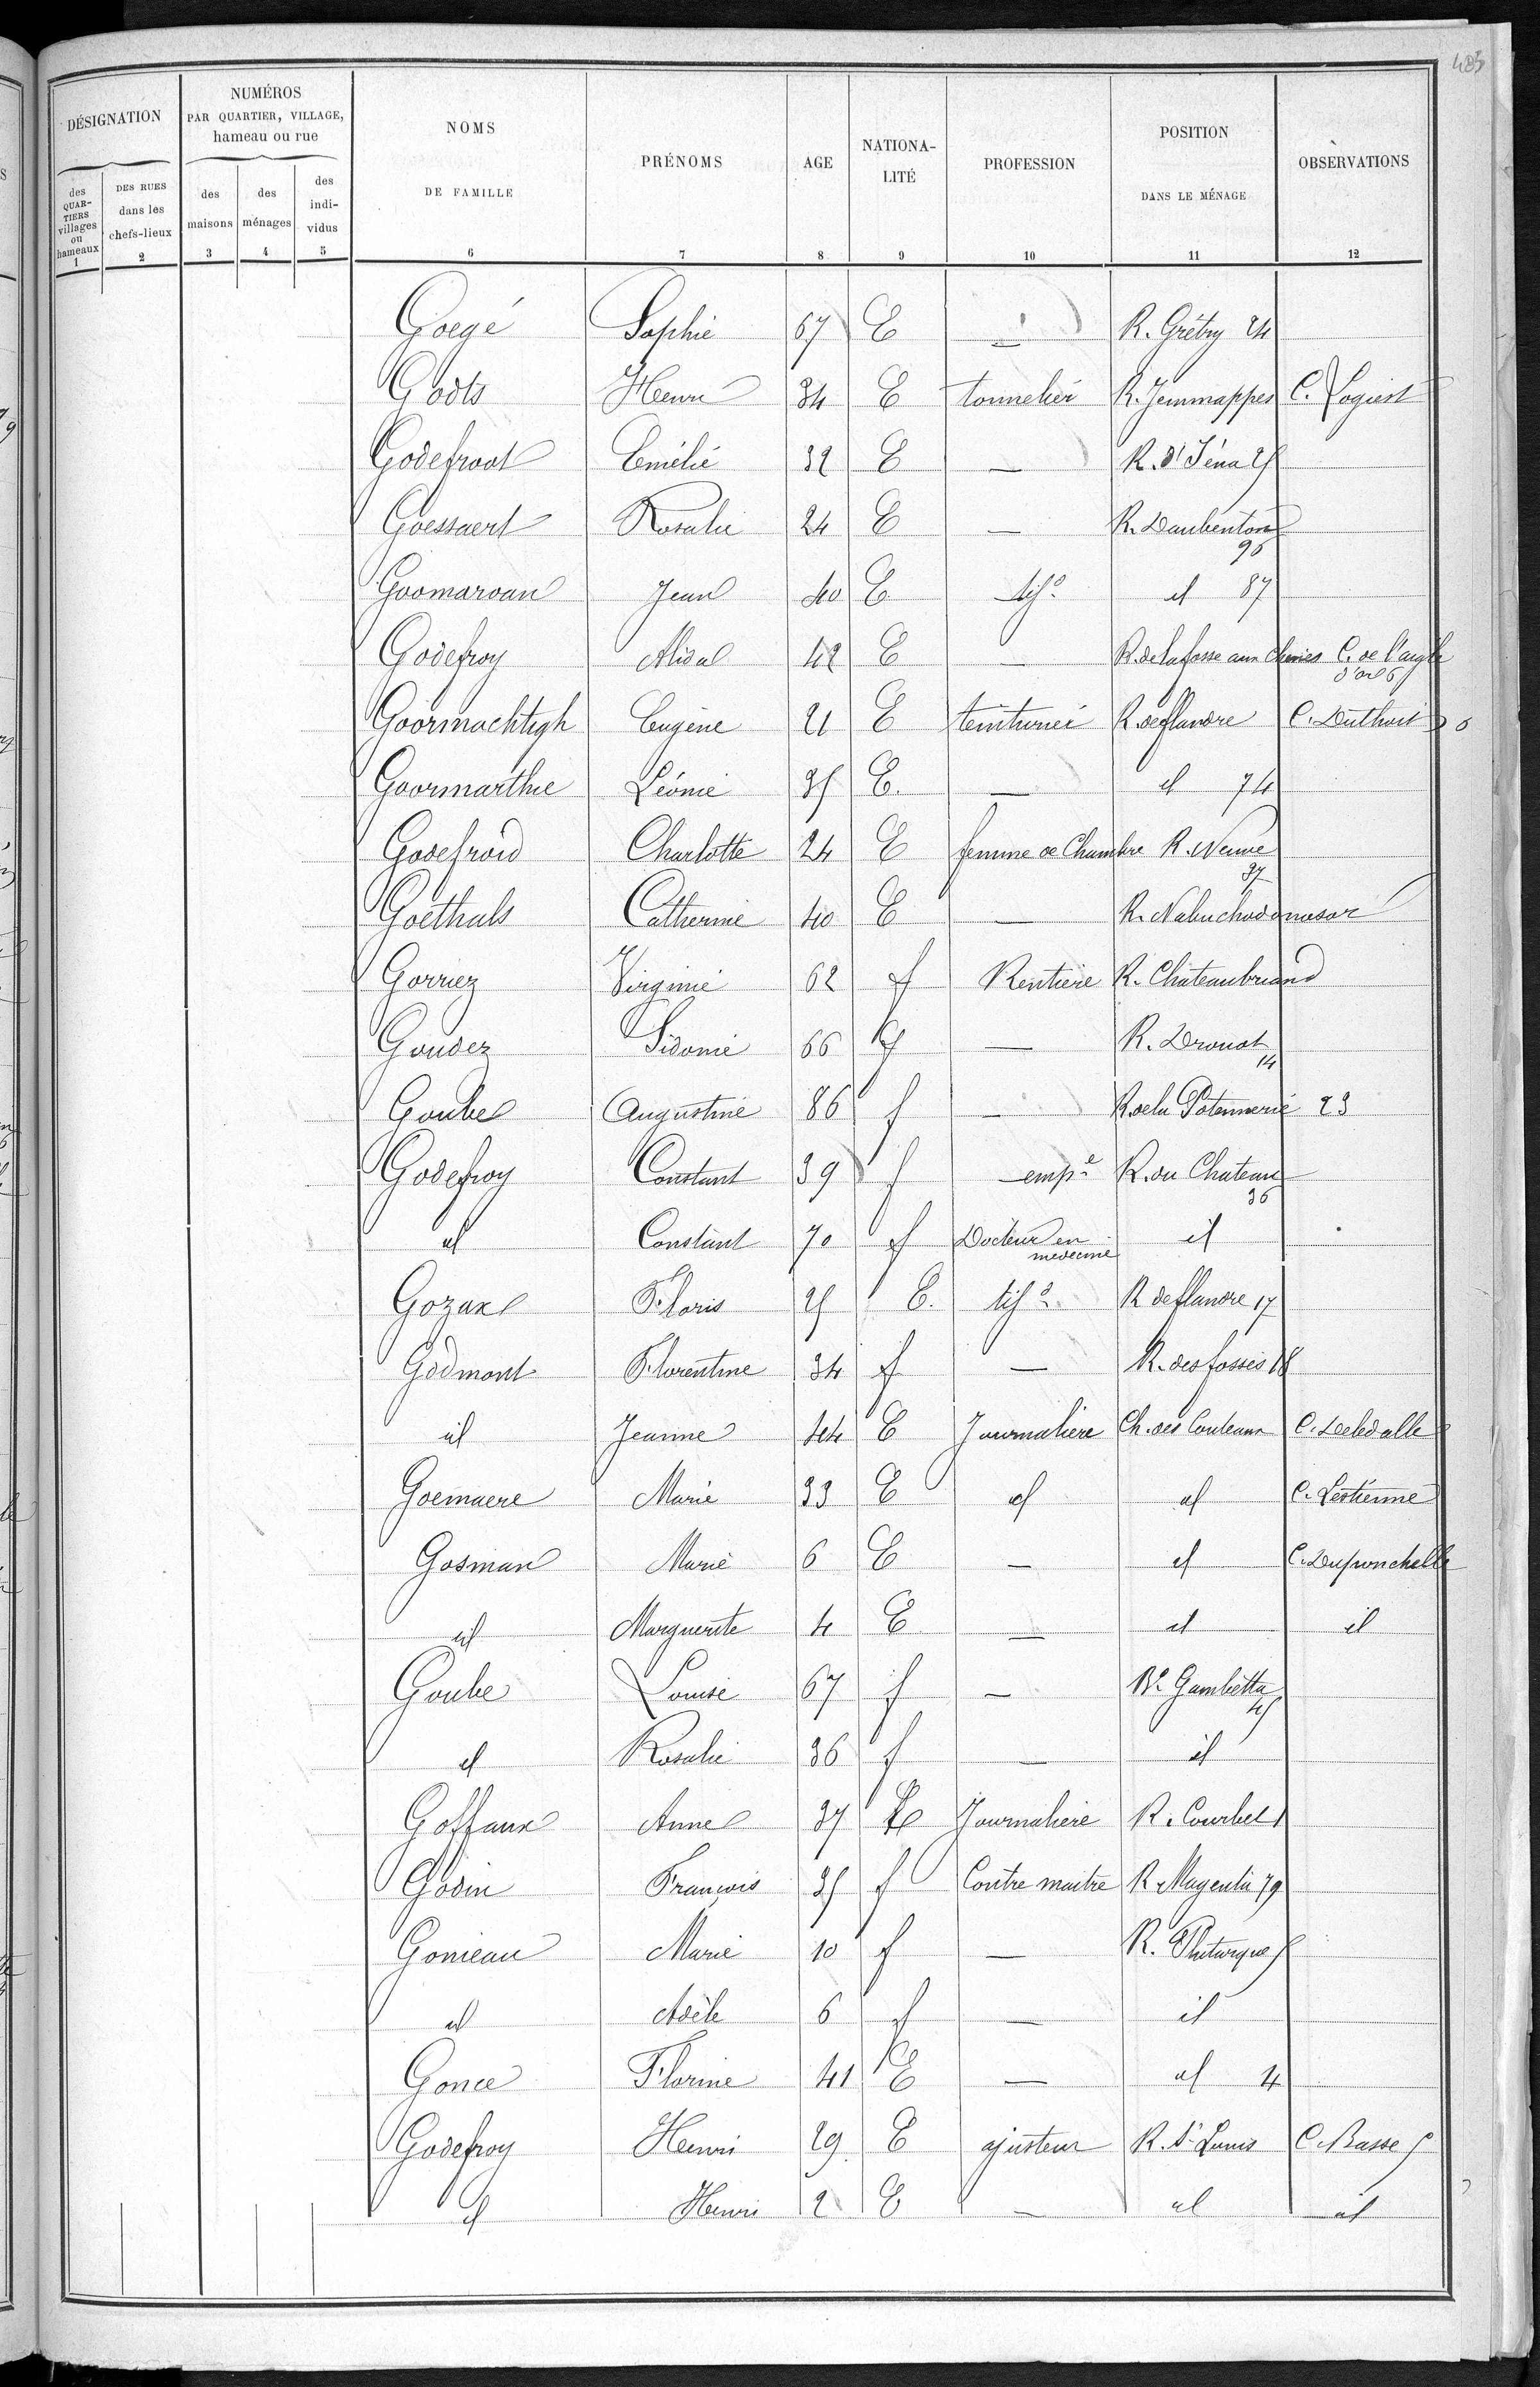 483
DÉSIGNATION
NUMÉROS
PAR QUARTIER, VILLAGE,
hameau ou rue
NOMS
DE FAMILLE
PRÉNOMS
AGE
NATIONA-
LITÉ
PROFESSION
POSITION
DANS LE MÉNAGE
OBSERVATIONS
des
QUAR-
TIERS
villages
ou
hameaux
DES RUES
dans les
chefs-lieux
des
maisons
des
ménages
des
indi-
vidus
1 2 3 4 5 6 7 8 9 10 11 12
Goegé Sophie 67 E — R. Grétry 24
Godts Henri 34 E tonnelier R. Jemmappes C. Logiest
Godefroot Emélie 32 E — R. d'Iéna 25
Goessaert Rosalie 24 E — R. Daubenton
96
Goomarvan Jean 40 E tisd id 87
Godefroy Alida 42 E — R. de la fosse aux chênes C. de l'aigle
d'or 6
Goormachtigh Eugène 21 E teinturier R. de flandre C. Duthoit
Goormarthie Léonie 35 E. — id 74
Godefroid Charlotte 24 E femme de Chambre R. Neuve
37
Goethals Catherine 40 E — R. Nabuchodonosor
Gorriez Virginie 62 f Rentière R. Chateaubriand
Goudez Sidonie 66 f — R. Drouot
14
Goube Augustine 86 f — R. de la Potennerie 23
Godefroy Constant 39 f empé R. du Chateau
36
id Constant 70 f Docteur en
medecine id
Gozax Floris 25 E. tisd R. de flandre 17
Godmont Florentine 34 f — R. des fossés 18
id Jeanne 44 E Journalière Ch. des Couteaux C. Deledalle
Goemaere Marie 33 E id id C. Lestienne
Gosman Marie 6 E — id C. Duponchelle
id Marguerite 4 E — id id
Goube Louise 67 f — Bd Gambetta
45
id Rosalie 36 f — id
Goffaux Anne E Journalière R. Courbet 1
Godin François 35 f Contre maitre R. Magenta 79
Gonieau Marie 10 f — R. Plutarque 5
id Adèle 6 f — id
Gonce Florine 41 E — id 4
Godefroy Henri 29 E ajusteur R. St Louis C. Basse 5
id Henri 2 E — id id